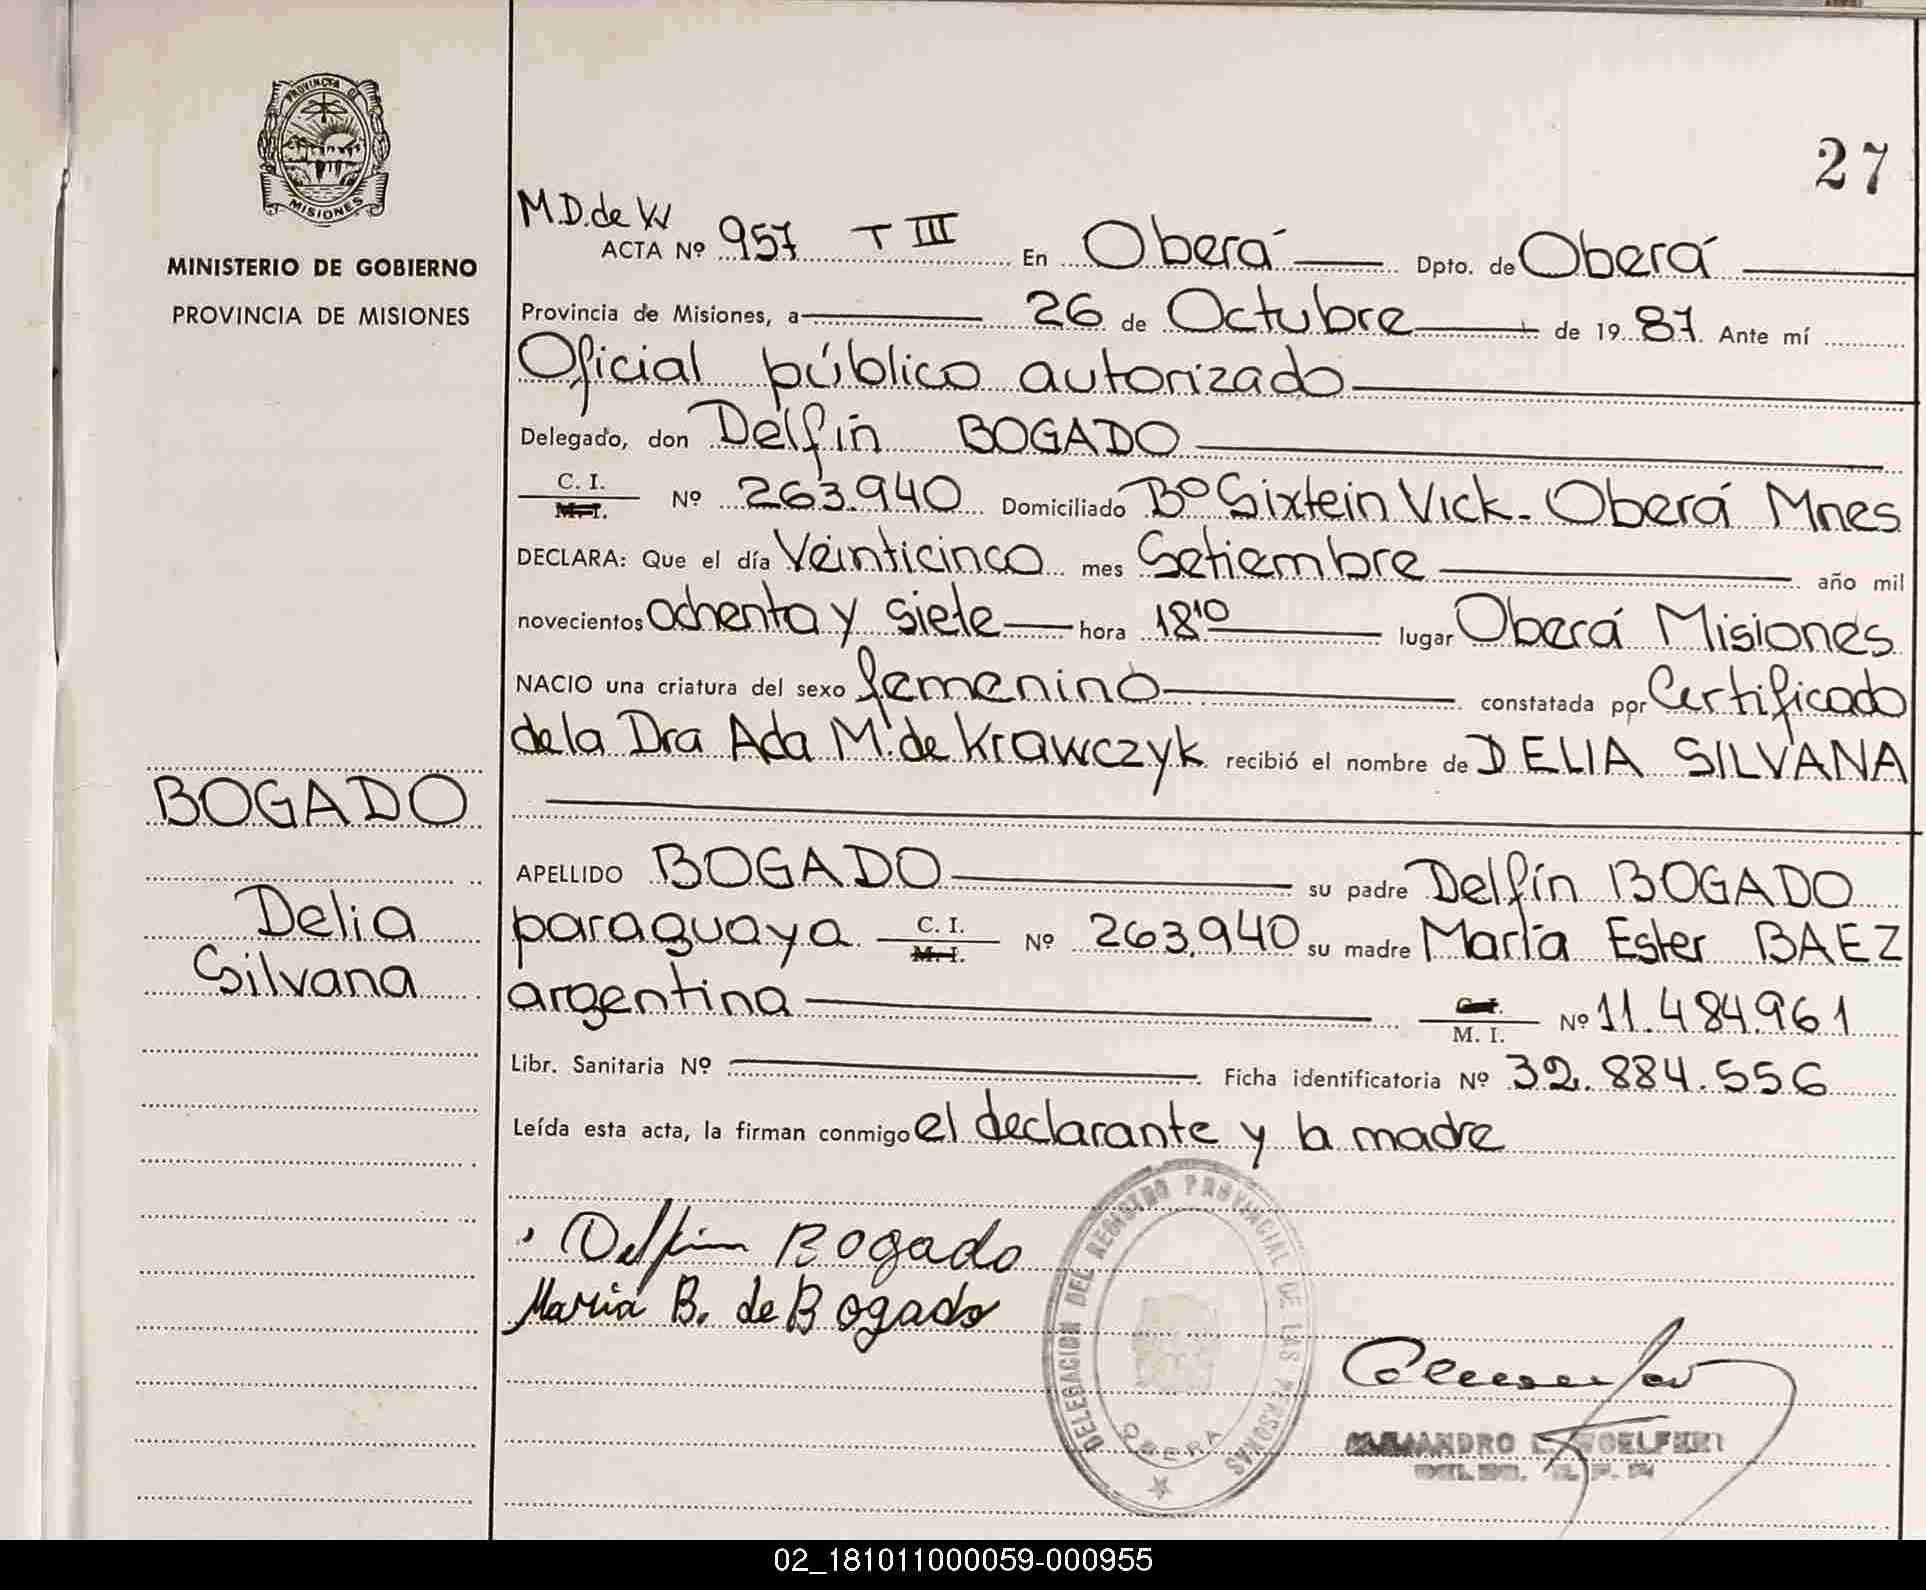 PROVINCIA DE
MISIONES
MINISTERIO DE GOBIERNO
PROVINCIA DE MISIONES
BOGADO
Delia
Silvana
27
M.D. de W
ACTA Nº 957 T III En Oberá Dpto. de Oberá
Provincia de Misiones, a 26 de Octubre de 1987. Ante mí
Oficial público autorizado
Delegado, don Delfín BOGADO
C. I.
M. I. Nº 263.940 Domiciliado Bº Sixtein Vick. Oberá Mnes
DECLARA: Que el día Veinticinco mes Setiembre año mil
novecientos ochenta y siete hora 18¹⁰ lugar Oberá Misiones
NACIO una criatura del sexo femenino constatada por Certificado
de la Dra Ada M. de Krawczyk recibió el nombre de DELIA SILVANA
APELLIDO BOGADO su padre Delfín BOGADO
paraguaya C. I.
M. I. Nº 263,940 su madre María Ester BAEZ
argentina C. I.
M. I. Nº 11.484.961
Libr. Sanitaria Nº Ficha identificatoria Nº 32.884.556
Leída esta acta, la firman conmigo el declarante y la madre
Delfin Bogado
Maria B. de Bogado
DELEGACION DEL REGISTRO PROVINCIAL DE LAS PERSONAS
OBERA
02_181011000059-000955